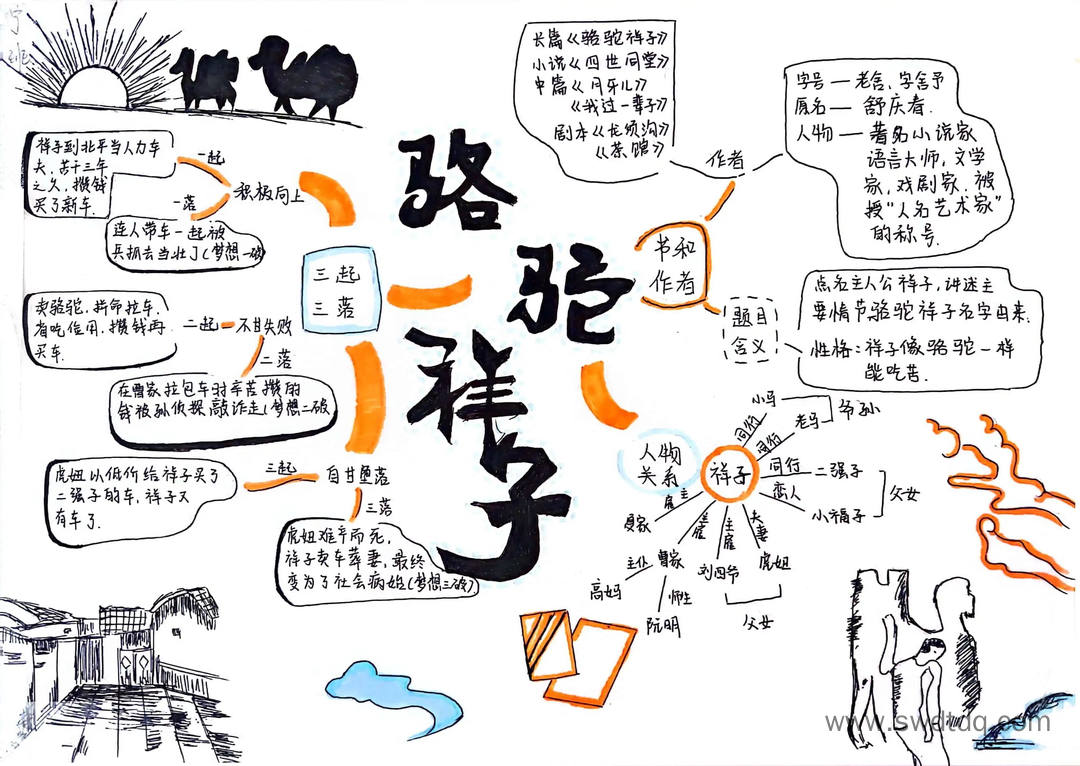 骆驼祥子
三起
三落
积极向上
一起
祥子到北平当人力车
夫，苦干三年
之久，攒钱
买了新车.
一落
连人带车一起被
兵抓去当壮丁(梦想一破)
不甘失败
二起
卖骆驼，拼命拉车.
省吃俭用.攒钱再
买车.
二落
在曹家拉包车时辛苦攒的
钱被孙侦探敲诈走(梦想二破)
自甘堕落
三起
虎妞以低价给祥子买了
二强子的车，祥子又
有车了.
三落
虎妞难产而死，
祥子卖车葬妻，最终
变为了社会病胎(梦想三破)
书和
作者
作者
长篇《骆驼祥子》
小说《四世同堂》
中篇《月牙儿》
《我这一辈子》
剧本《龙须沟》
《茶馆》
字号—老舍，字舍予
原名—舒庆春.
人物—著名小说家
语言大师，文学
家，戏剧家.被
授“人名艺术家”
的称号.
题目
含义
点名主人公祥子，讲述主
要情节骆驼祥子名字由来.
性格：祥子像骆驼一样
能吃苦.
人物
关系
祥子
同行
小马
同行
老马
爷孙
同行
二强子
恋人
小福子
父女
雇主
夏家
主雇
曹家
主仆
高妈
师生
阮明
主雇
刘四爷
夫妻
虎妞
父女
www.swdtdq.com